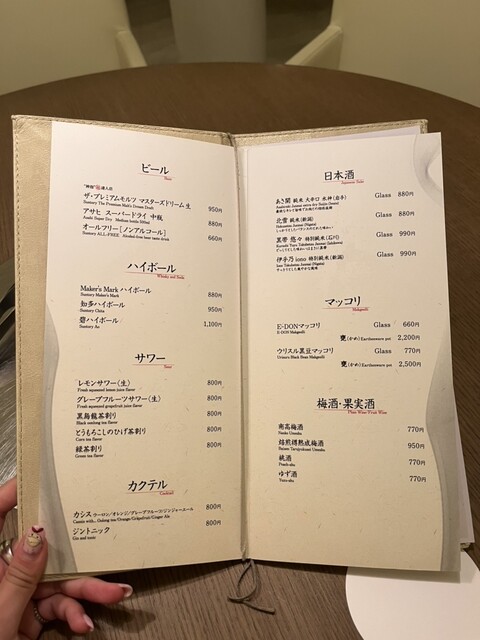 ビール
Beer
ザ・プレミアムモルツ マスターズドリーム 生 950円
Suntory The Premium Malt's Dream Draft
アサヒ スーパードライ 中瓶 880円
Asahi Super Dry Medium bottle 500ml
オールフリー［ノンアルコール］ 660円
Suntory ALL-FREE Alcohol-free beer taste drink
ハイボール
Whisky and Soda
Maker's Mark ハイボール 880円
Suntory Maker's Mark
知多ハイボール 950円
Suntory Chita
碧ハイボール 1,100円
Suntory Ao
サワー
Sour
レモンサワー（生） 800円
Fresh squeezed lemon juice flavor
グレープフルーツサワー（生） 800円
Fresh squeezed grapefruit juice flavor
黒烏龍茶割り 800円
Black oolong tea flavor
とうもろこしのひげ茶割り 800円
Corn tea flavor
緑茶割り 800円
Green tea flavor
カクテル
Cocktail
カシス ウーロン/オレンジ/グレープフルーツ/ジンジャーエール 800円
Cassis with.. Oolong tea/Orange/Grapefruit/Ginger Ale
ジントニック 800円
Gin and tonic
日本酒
Japanese Sake
あさ開 純米 大辛口 水神（岩手） Glass 880円
北雪 純米（新潟） Glass 880円
黒帯 悠々 特別純米（石川） Glass 990円
伊乎乃 iono 特別純米（新潟） Glass 990円
マッコリ
Makgeolli
E-DONマッコリ Glass 660円
E-DON Makgeolli
甕（かめ）Earthenware pot 2,200円
ウリスル黒豆マッコリ Glass 770円
Urisuru Black Bean Makgeolli
甕（かめ）Earthenware pot 2,500円
梅酒・果実酒
Plum Wine/Fruit Wine
南高梅酒 770円
Nanko Umeshu
焙煎樽熟成梅酒 950円
Baisen Tarujyukusei Umeshu
桃酒 770円
Peach-shu
ゆず酒 770円
Yuzu-shu